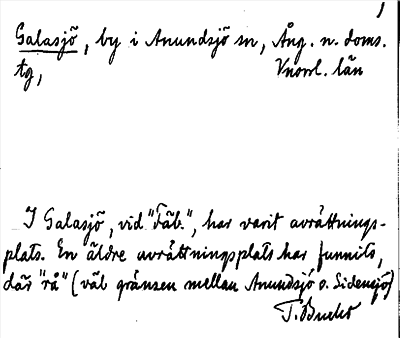 Galasjö, by i Anundsjö sn, Ång. n. doms.
tg, Vnorrl. län
I Galasjö, vid "Fäb.", har varit avrättnings-
plats. En äldre avrättningsplats har funnits,
där "rå" (väl gränsen mellan Anundsjö o. Sidensjö)
T. Bucht